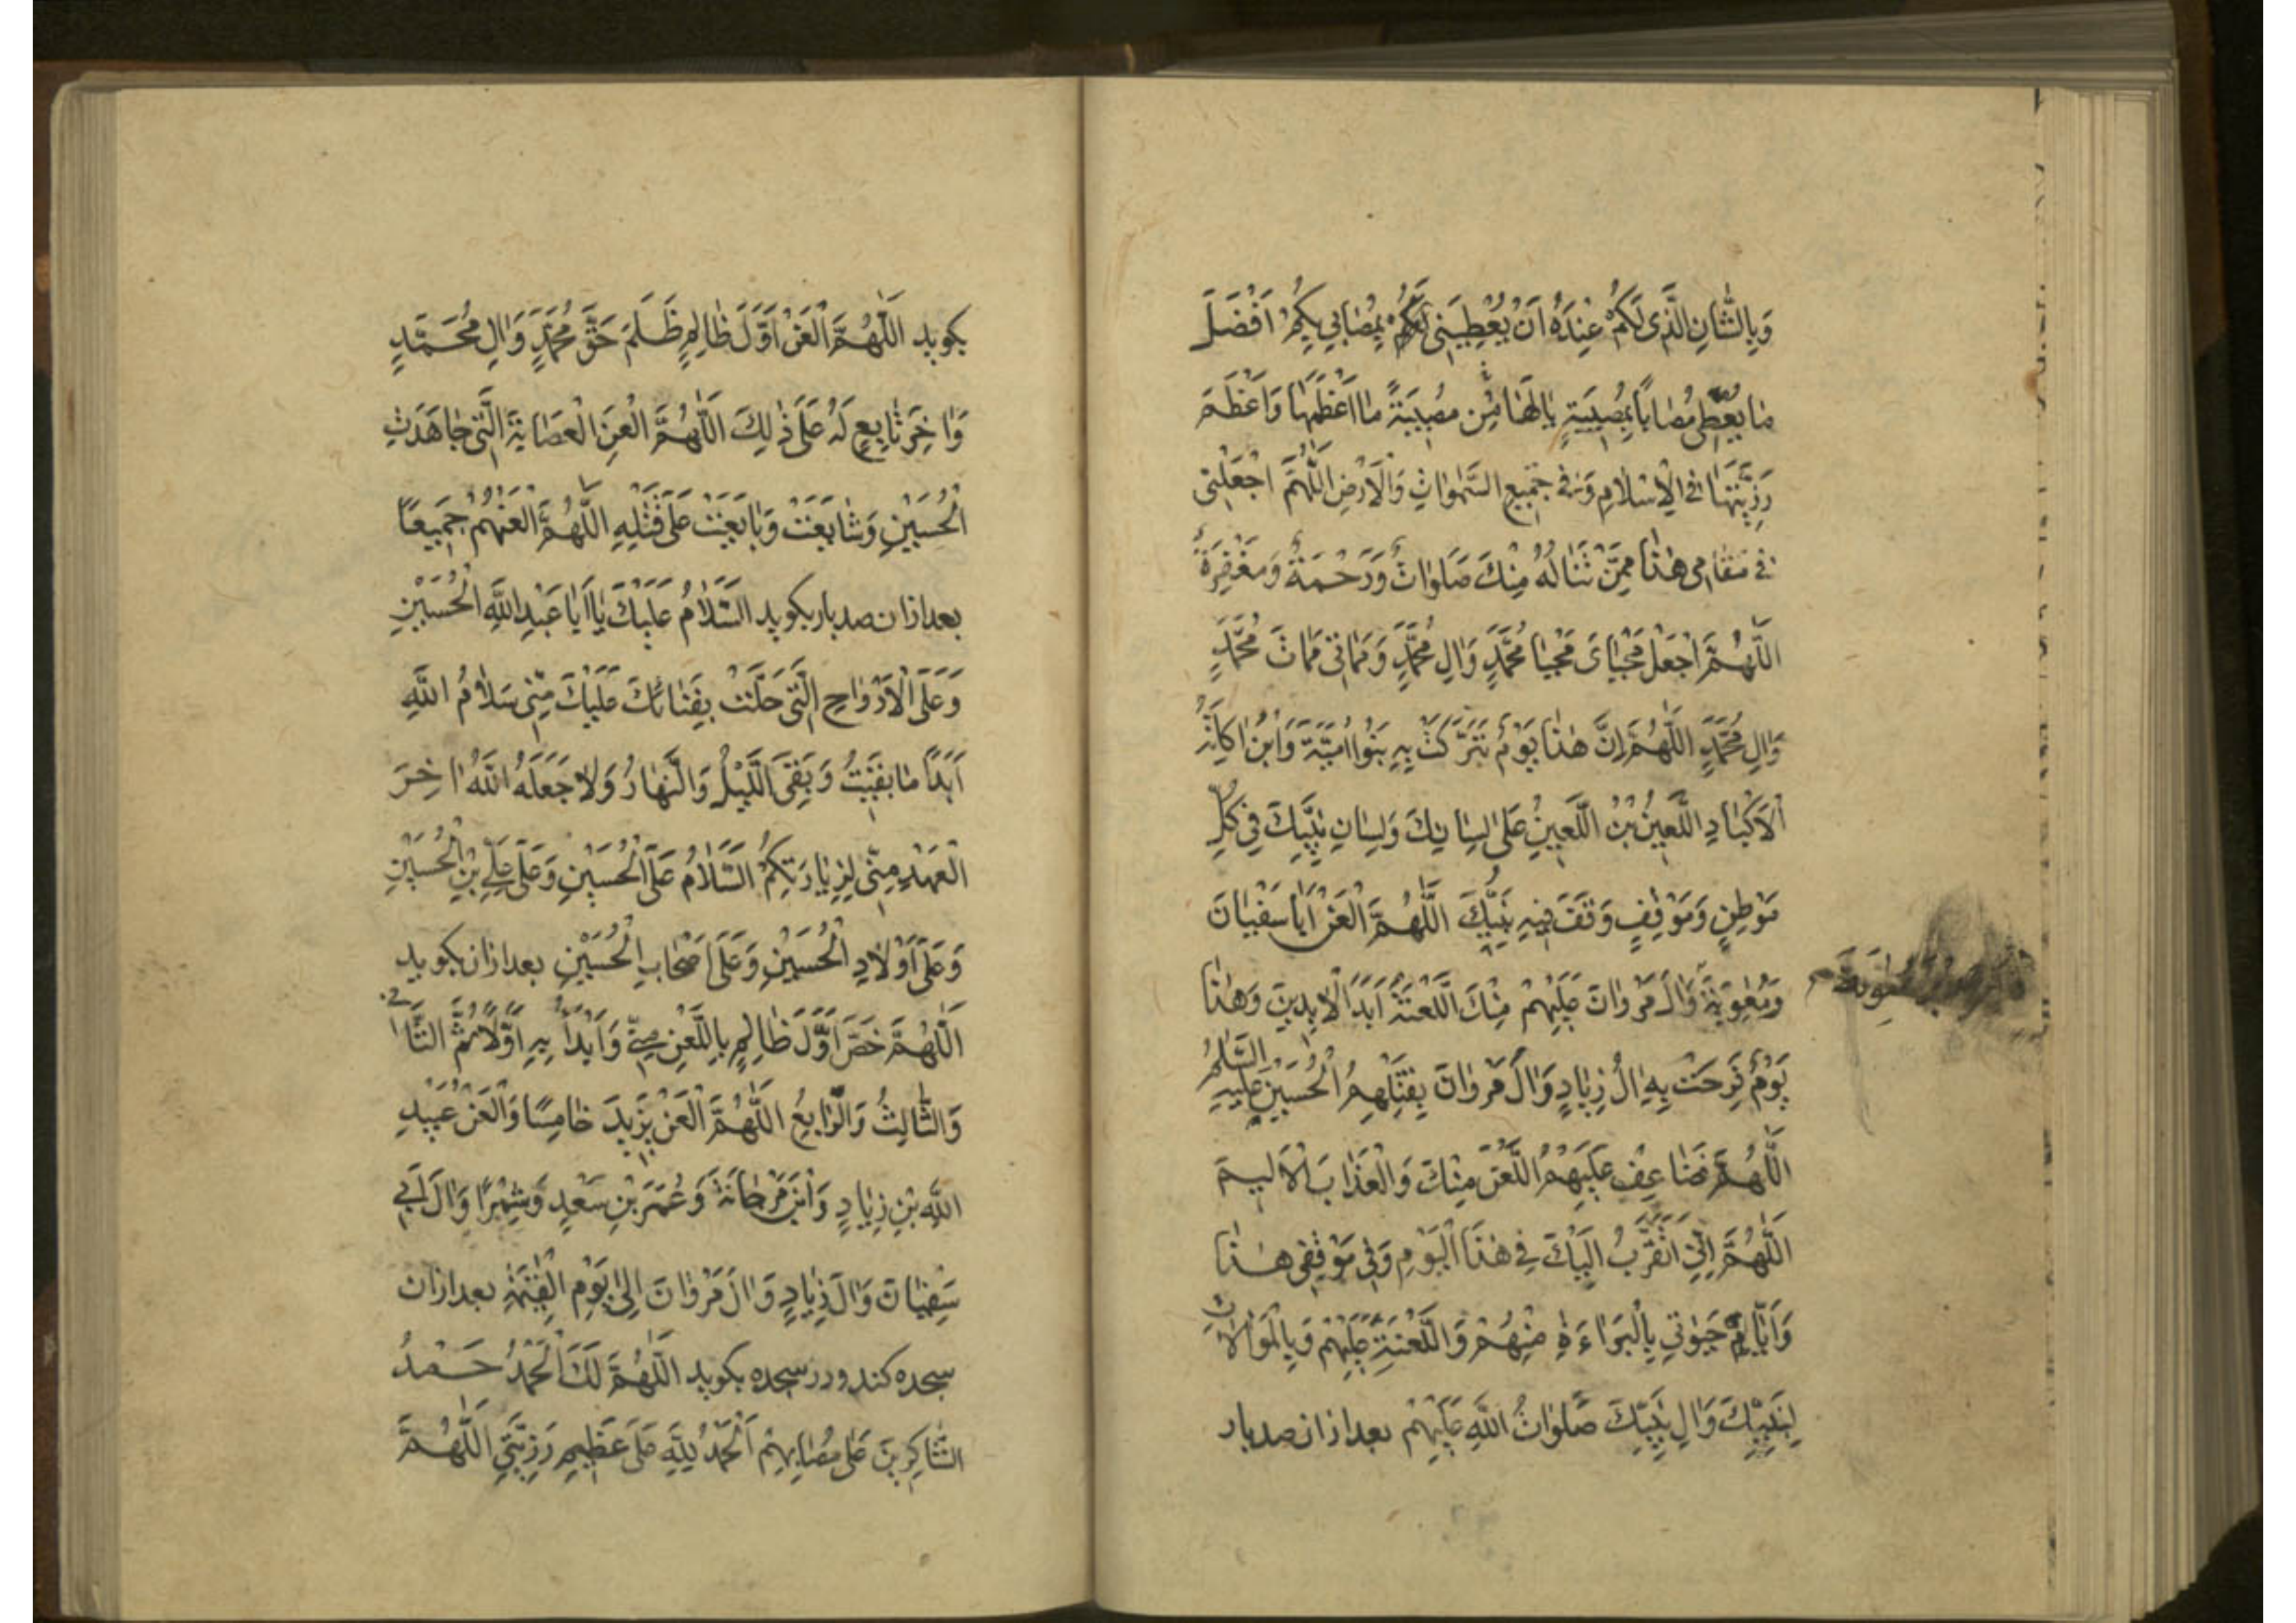 وَبِالشَّانِ الَّذِى لَكُمْ عِنْدَهُ اَنْ يُعْطِيَنِى بِمُصَابِى بِكُمْ اَفْضَلَ
مَا يُعْطِى مُصَابًا بِمُصِيبَةٍ يَالَهَا مِنْ مُصِيبَةً مَا اَعْظَمَهَا وَاَعْظَمَ
رَزِيَّتَهَا فِى الْاِسْلَامِ وَفِى جَمِيعِ السَّمٰوَاتِ وَالْاَرْضِ اللّٰهُمَّ اجْعَلْنِى
فِى مَقَامِى هٰذَا مِمَّنْ تَنَالُهُ مِنْكَ صَلَوَاتٌ وَرَحْمَةٌ وَمَغْفِرَةٌ
اللّٰهُمَّ اجْعَلْ مَحْيَاىَ مَحْيَا مُحَمَّدٍ وَاٰلِ مُحَمَّدٍ وَمَمَاتِى مَمَاتَ مُحَمَّدٍ
وَاٰلِ مُحَمَّدٍ اللّٰهُمَّ اِنَّ هٰذَا يَوْمٌ تَبَرَّكَتْ بِهِ بَنُوا اُمَيَّةَ وَابْنُ اٰكِلَةِ
الْاَكْبَادِ اللَّعِينُ بْنُ اللَّعِينِ عَلٰى لِسَانِكَ وَلِسَانِ نَبِيِّكَ فِى كُلِّ
مَوْطِنٍ وَمَوْقِفٍ وَقَفَ فِيهِ نَبِيُّكَ اللّٰهُمَّ الْعَنْ اَبَا سُفْيَانَ
وَمُعٰوِيَةَ وَاٰلَ مَرْوَانَ عَلَيْهِمْ مِنْكَ اللَّعْنَةُ اَبَدَ الْاٰبِدِينَ وَهٰذَا
يَوْمٌ فَرِحَتْ بِهِ اٰلُ زِيَادٍ وَاٰلُ مَرْوَانَ بِقَتْلِهِمُ الْحُسَيْنَ عَلَيْهِ السَّلٰمُ
اللّٰهُمَّ فَضَاعِفْ عَلَيْهِمُ اللَّعْنَ مِنْكَ وَالْعَذَابَ الْاَلِيمَ
اللّٰهُمَّ اِنِّى اَتَقَرَّبُ اِلَيْكَ فِى هٰذَا الْيَوْمِ وَفِى مَوْقِفِى هٰذَا
وَاَيَّامِ حَيٰوتِى بِالْبَرَاءَةِ مِنْهُمْ وَاللَّعْنَةِ عَلَيْهِمْ وَبِالْمُوَالَاتِ
لِنَبِيِّكَ وَاٰلِ نَبِيِّكَ صَلَوَاتُ اللّٰهِ عَلَيْهِمْ بعد ازان صد بار
بكويد اللّٰهُمَّ الْعَنْ اَوَّلَ ظَالِمٍ ظَلَمَ حَقَّ مُحَمَّدٍ وَاٰلِ مُحَمَّدٍ
وَاٰخِرَ تَابِعٍ لَهُ عَلٰى ذٰلِكَ اللّٰهُمَّ الْعَنِ الْعِصَابَةَ الَّتِى جَاهَدَتِ
الْحُسَيْنِ وَشَايَعَتْ وَبَايَعَتْ عَلٰى قَتْلِهِ اللّٰهُمَّ الْعَنْهُمْ جَمِيعًا
بعد ازان صد بار بكويد السَّلَامُ عَلَيْكَ يَا اَبَا عَبْدِ اللّٰهِ الْحُسَيْنِ
وَعَلَى الْاَرْوَاحِ الَّتِى حَلَّتْ بِفِنَائِكَ عَلَيْكَ مِنِّى سَلَامُ اللّٰهِ
اَبَدًا مَا بَقِيتُ وَبَقِىَ اللَّيْلُ وَالنَّهَارُ وَلَا جَعَلَهُ اللّٰهُ اٰخِرَ
الْعَهْدِ مِنِّى لِزِيَارَتِكُمْ السَّلَامُ عَلَى الْحُسَيْنِ وَعَلٰى عَلِىِّ بْنِ الْحُسَيْنِ
وَعَلٰى اَوْلَادِ الْحُسَيْنِ وَعَلٰى اَصْحَابِ الْحُسَيْنِ بعد ازان بكويد
اللّٰهُمَّ خُصَّ اَوَّلَ ظَالِمٍ بِاللَّعْنِ مِنِّى وَابْدَأْ بِهِ اَوَّلًا ثُمَّ الثَّانِى
وَالثَّالِثُ وَالرَّابِعُ اللّٰهُمَّ الْعَنْ يَزِيدَ خَامِسًا وَالْعَنْ عُبَيْدِ
اللّٰهِ بْنِ زِيَادٍ وَابْنَ مَرْجَانَةَ وَعُمَرَ بْنِ سَعْدٍ وَشِمْرًا وَاٰلَ اَبِى
سُفْيَانَ وَاٰلَ زِيَادٍ وَاٰلَ مَرْوَانَ اِلٰى يَوْمِ الْقِيٰمَةِ بعد ازان
سجده كند و در سجده بكويد اللّٰهُمَّ لَكَ الْحَمْدُ حَمْدُ
الشَّاكِرِينَ عَلٰى مُصَابِهِمْ اَلْحَمْدُ لِلّٰهِ عَلٰى عَظِيمِ رَزِيَّتِى اللّٰهُمَّ